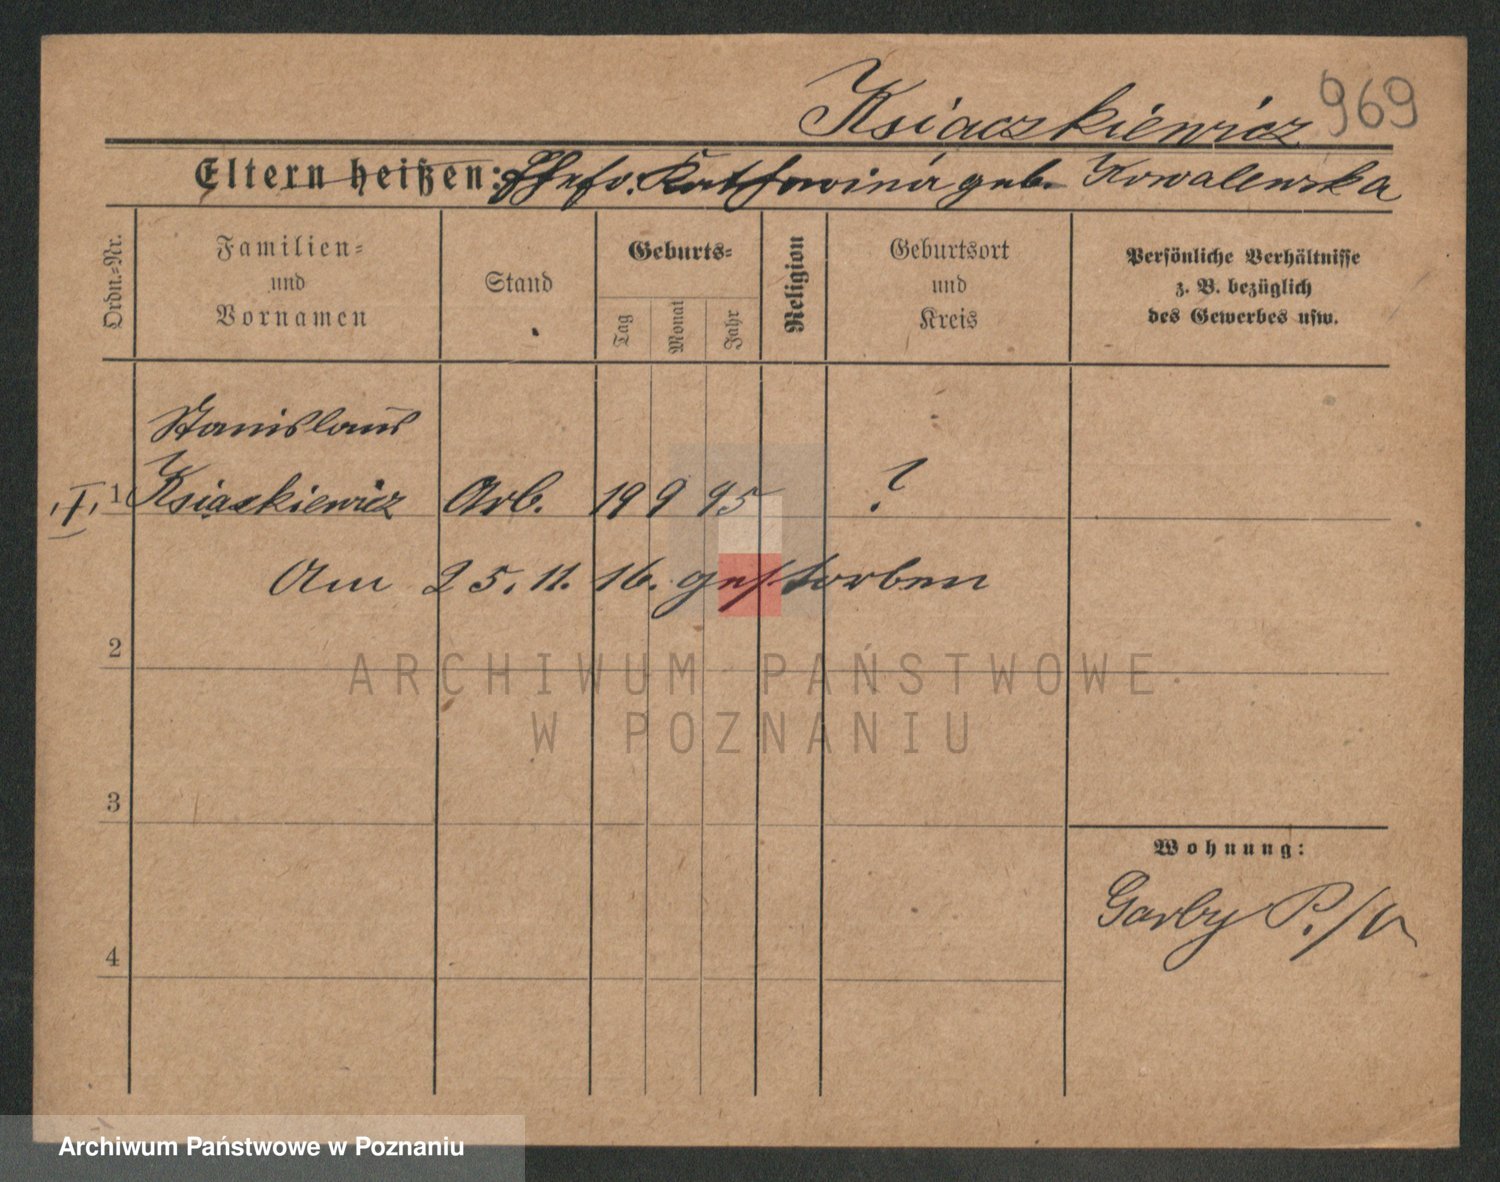 Ksiaczkiewicz 969
Eltern heißen: Ehefr. Katharina geb. Kowalewska
Ordn.-Nr.
Familien-
und
Vornamen
Stand
Geburts-
Tag
Monat
Jahr
Religion
Geburtsort
und
Kreis
Persönliche Verhältnisse
z. B. bezüglich
des Gewerbes usw.
Stanislaus
1 Ksiaskiewicz Arb. 19 9 95 ?
Am 25. 11. 16. gestorben
2
ARCHIWUM PAŃSTWOWE
W POZNANIU
3
Wohnung:
Garby
4
Archiwum Państwowe w Poznaniu